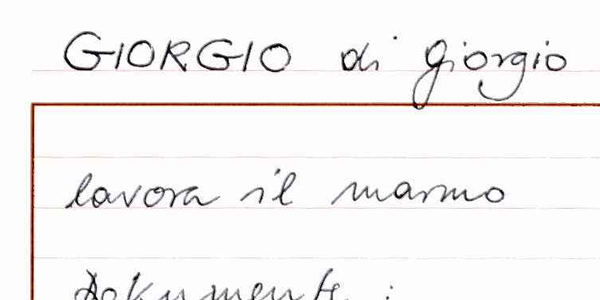 GIORGIO di giorgio
lavora il marmo
Dokumente :